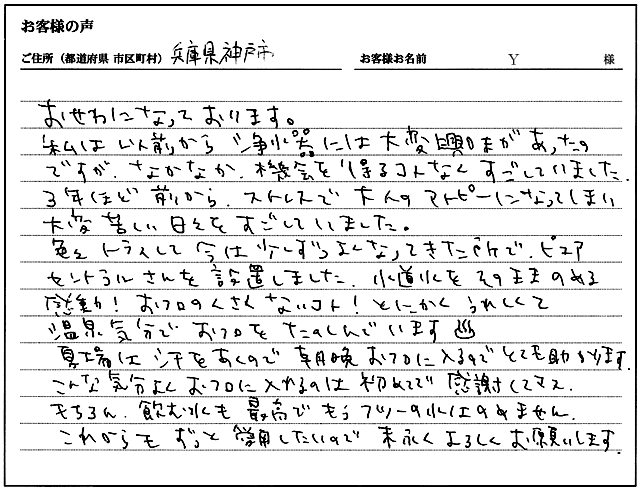 お客様の声
ご住所（都道府県 市区町村） 兵庫県神戸市 お客様お名前 Y 様
おせわになっております。
私は以前から浄水器には大変興味があったの
ですが、なかなか、機会を得るコトなくすごしていました。
3年ほど前から、ストレスで大人のアトピーになってしまい
大変苦しい日々をすごしていました。
色々トライして今は少しずつよくなってきた所で、ピュア
セントラルさんを設置しました。水道水をそのままのめる
感動！おフロのくさくないコト！とにかくうれしくて
温泉気分でおフロをたのしんでいます♨
夏場は汗をかくので朝晩おフロに入るのでとても助かります。
こんな気分よくおフロに入れるのは初めてで感謝してマス。
もちろん、飲む水も最高でもうフツーの水はのめません。
これからもずっと愛用したいので末永くよろしくお願いします。